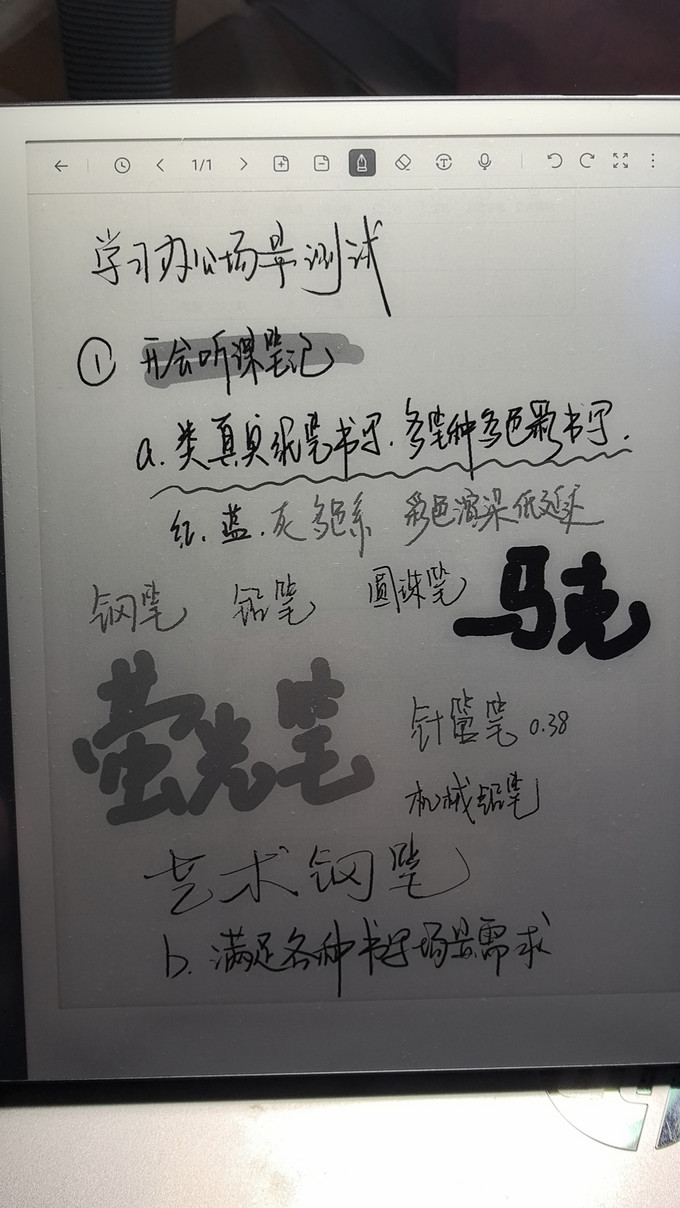 1/1
学习办公场景测试
① 开会听课笔记
a. 类真实纸笔书写.多笔种多色彩书写.
红.蓝.灰多色系 彩色渲染低延迟
钢笔 铅笔 圆珠笔 马克
萤光笔
针管笔 0.38
机械铅笔
艺术钢笔
b. 满足各种书写场景需求